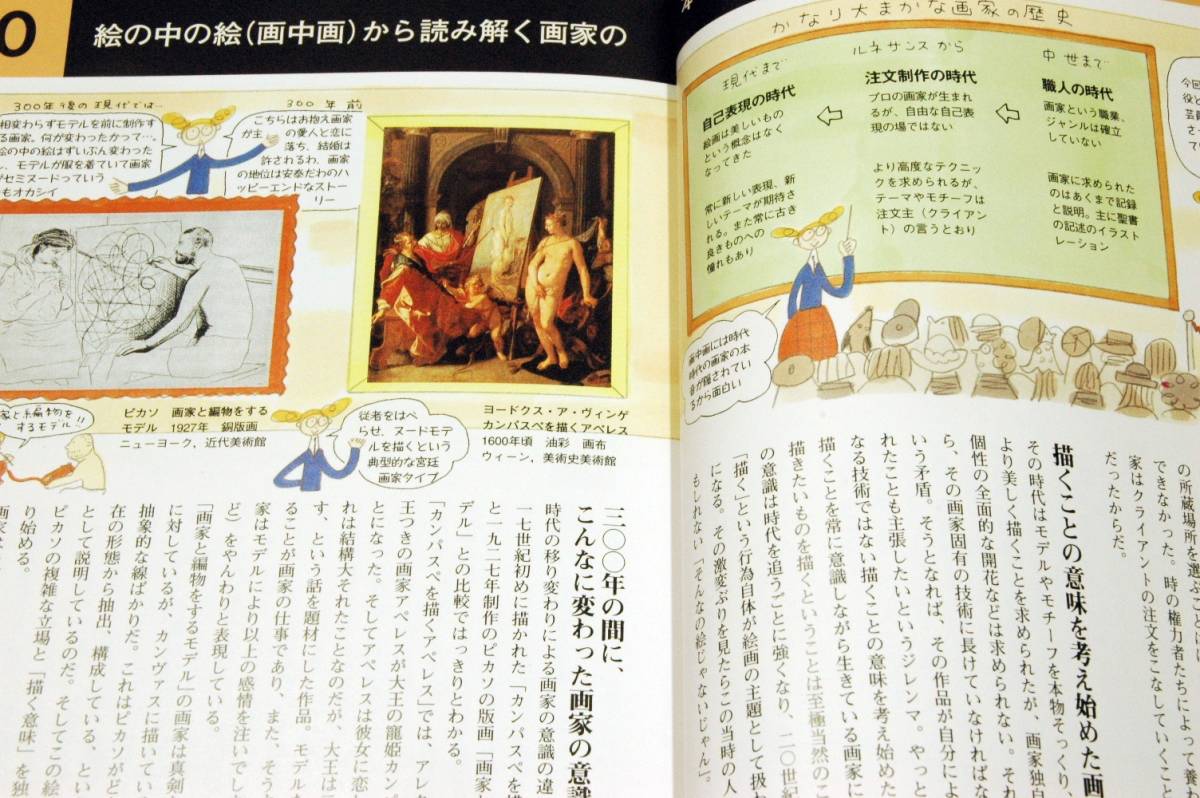 0
絵の中の絵(画中画)から読み解く画家の
300年後の現代では…
相変わらずモデルを前に制作す
る画家。何が変わったかって…。
絵の中の絵はずいぶん変わった
モデルが服を着ていて画家
がセミヌードっていう
もオカシイ
300年前
こちらはお抱え画家
が主の愛人と恋に
落ち、結婚は
許されるわ、画家
の地位は安泰だわのハ
ッピーエンドなストー
リー
ピカソ 画家と編物をする
モデル 1927年 銅版画
ニューヨーク、近代美術館
家と編物を
するモデル!!
従者をはべ
らせ、ヌードモデ
ルを描くという
典型的な宮廷
画家タイプ
ヨードクス・ア・ヴィンゲ
カンパスペを描くアペレス
1600年頃 油彩 画布
ウィーン、美術史美術館
かなり大まかな画家の歴史
中世まで
職人の時代
画家という職業、
ジャンルは確立
していない
画家に求められた
のはあくまで記録
と説明。主に聖書
の記述のイラスト
レーション
ルネサンスから
注文制作の時代
プロの画家が生まれ
るが、自由な自己表
現の場ではない
より高度なテクニッ
クを求められるが、
テーマやモチーフは
注文主(クライアン
ト)の言うとおり
現代まで
自己表現の時代
絵画は美しいもの
という概念はなく
なってきた
常に新しい表現、新
しいテーマが期待さ
れる。また常に古き
良きものへの
憧れもあり
画中画には時代
時代の画家の本
音が隠されてい
るから面白い
今回
役と
芸員
の所蔵場所を選
できなかった。時の権力者たちによって養わ
家はクライアントの注文をこなしていくこと
だったからだ。
描くことの意味を考え始めた画
その時代はモデルやモチーフを本物そっくり、
より美しく描くことを求められたが、画家独自
個性の全面的な開花などは求められない。それ
ら、その画家固有の技術に長けていなければな
いう矛盾。そうとなれば、その作品が自分によ
れたことも主張したいというジレンマ。やっと
なる技術ではない描くことの意味を考え始めた
描くことを常に意識しながら生きている画家に
描きたいものを描くということは至極当然のこ
の意識は時代を追うごとに強くなり、二〇世紀
「描く」という行為自体が絵画の主題として扱わ
になる。その激変ぶりを見たらこの当時の人
もしれない「そんなの絵じゃないじゃん」。
三〇〇年の間に、
こんなに変わった画家の意識
時代の移り変わりによる画家の意識の違
一七世紀初めに描かれた「カンパスペを描
と一九二七年制作のピカソの版画「画家と
デル」との比較ではっきりとわかる。
「カンパスペを描くアペレス」では、アレキ
王つきの画家アペレスが大王の寵姫カンパ
とになった。そしてアペレスは彼女に恋し
れは結構大それたことなのだが、大王は二
す、という話を題材にした作品。モデルを
ることが画家の仕事であり、また、そうす
家はモデルにより以上の感情を注いでし
ど)をやんわりと表現している。
「画家と編物をするモデル」の画家は真剣な
に対しているが、カンヴァスに描いてい
抽象的な線ばかりだ。これはピカソがど
在の形態から抽出、構成している、とい
として説明しているのだ。そしてこの絵
ピカソの複雑な立場と「描く意味」を独
り始める。